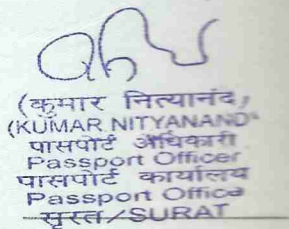 (कुमार नित्यानंद)
(KUMAR NITYANAND)
पासपोर्ट अधिकारी
Passport Officer
पासपोर्ट कार्यालय
Passport Office
सूरत/SURAT